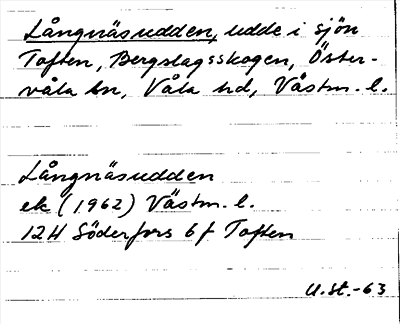 Långnäsudden, udde i sjön
Toften, Bergslagsskogen, Öster-
våla sn, Våla hd, Västm. l.
Långnäsudden
ek (1962) Västm. l.
12H Söderfors 6f Toften
U.St.-63